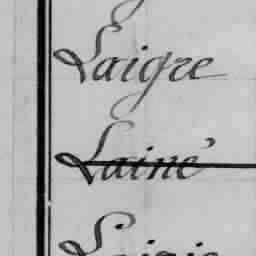 Laigre
Lainé